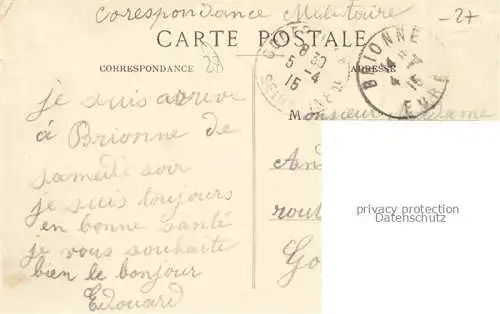 Correspondance Militaire
-27
CARTE POSTALE
CORRESPONDANCE
28
ADRESSE
8 30
5 -4
15
BRIONNE
4 15
EURE
je suis arrivé
à Brionne de
samedi soir
je suis toujours
en bonne santé
je vous souhaite
bien le bonjour
Edouard
Monsieur Madame
And
rout
Go
privacy protection
Datenschutz